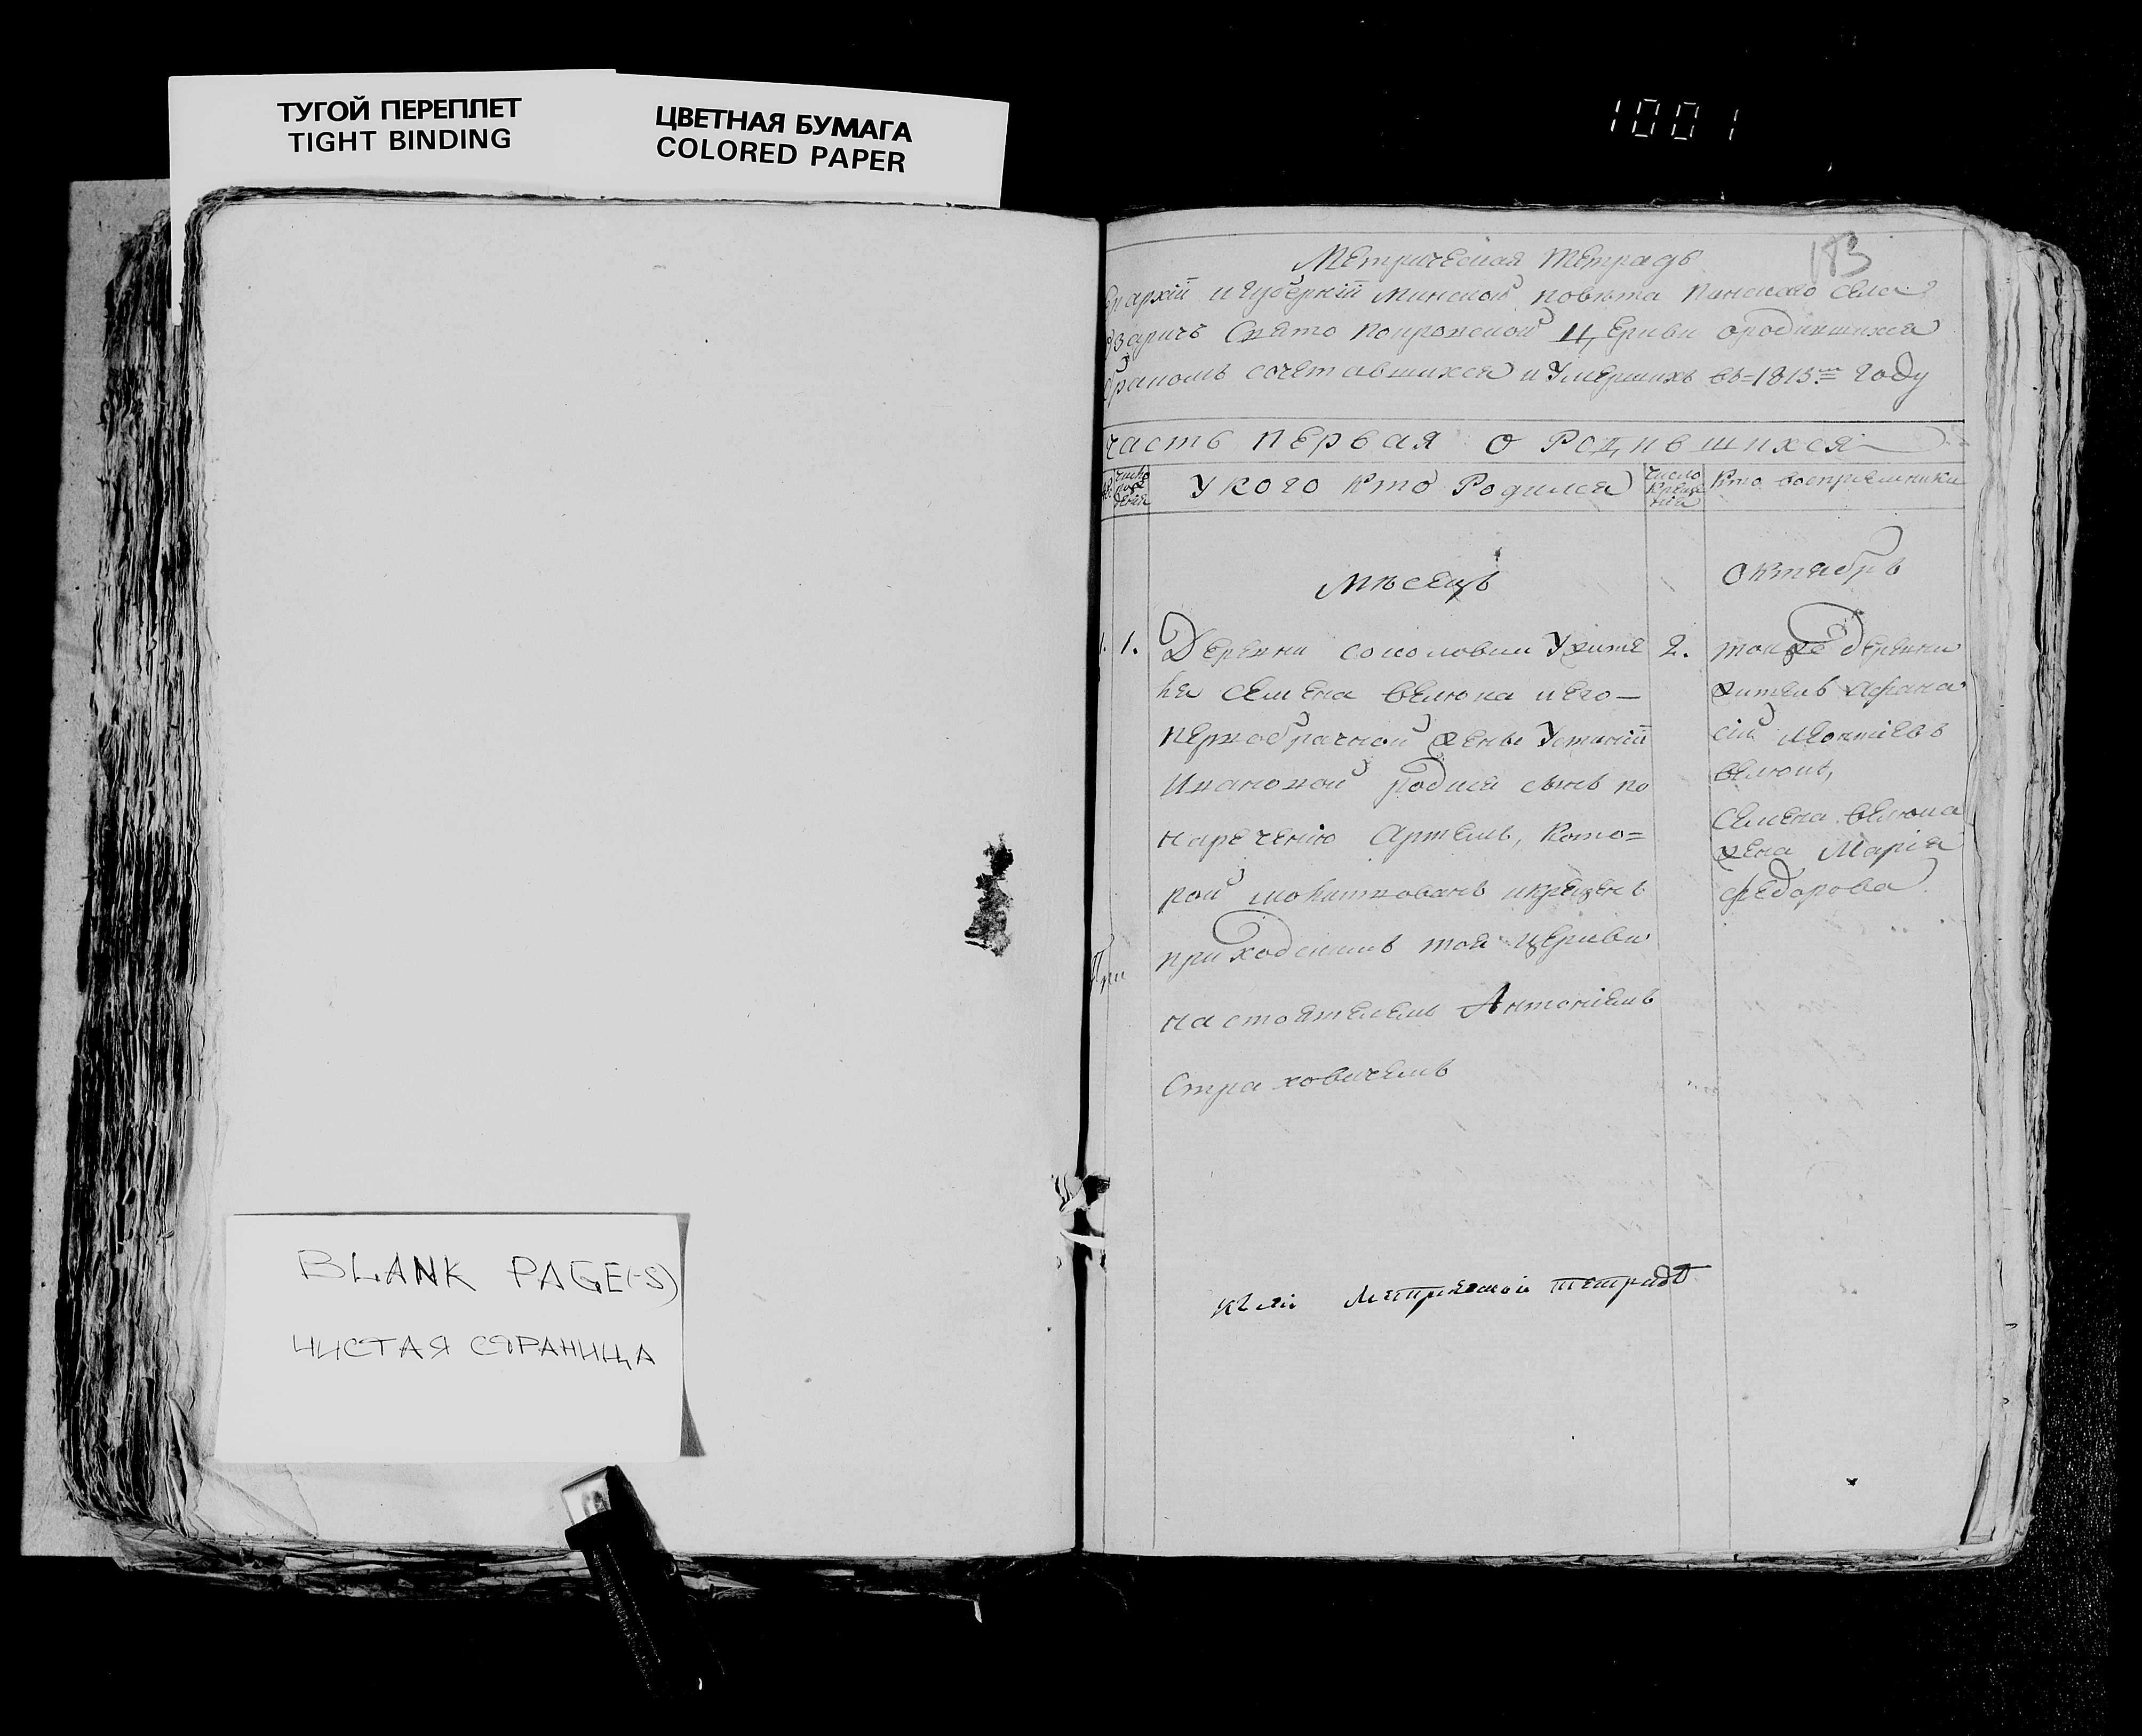 ТУГОЙ ПЕРЕПЛЕТ
TIGHT BINDING
ЦВЕТНАЯ БУМАГА
COLORED PAPER
1001
183
Метрическая Тетрадь
Епархіи и Губерніи Минской повѣта Пинскаго села
Свято Покровской Церкви о родившихся
бракомъ сочетавшихся и Умершихъ въ = 1813.м Году
Часть первая о Родившихся
Число рождения
У кого кто Родился
Число крещения
Кто восприемники
Мѣсецъ
Октябрь
1. 1. Деревни Соколовки У жите
ля Семена Велюка и его
первобрачной жены Устиніи
Ивановой родился сынъ по
наречению Артемъ, Кото=
рой молитвованъ и крещенъ
приходскимъ тоя церкви
настоятелемъ Антоніемъ
Страховичемъ
2. тойже деревни
житель Афана
сій Леонтіевъ
Велюкъ,
Семена Велюка
жена Марія
Федорова
При
Метрической тетради
BLANK PAGE(-S)
ЧИСТАЯ СТРАНИЦА